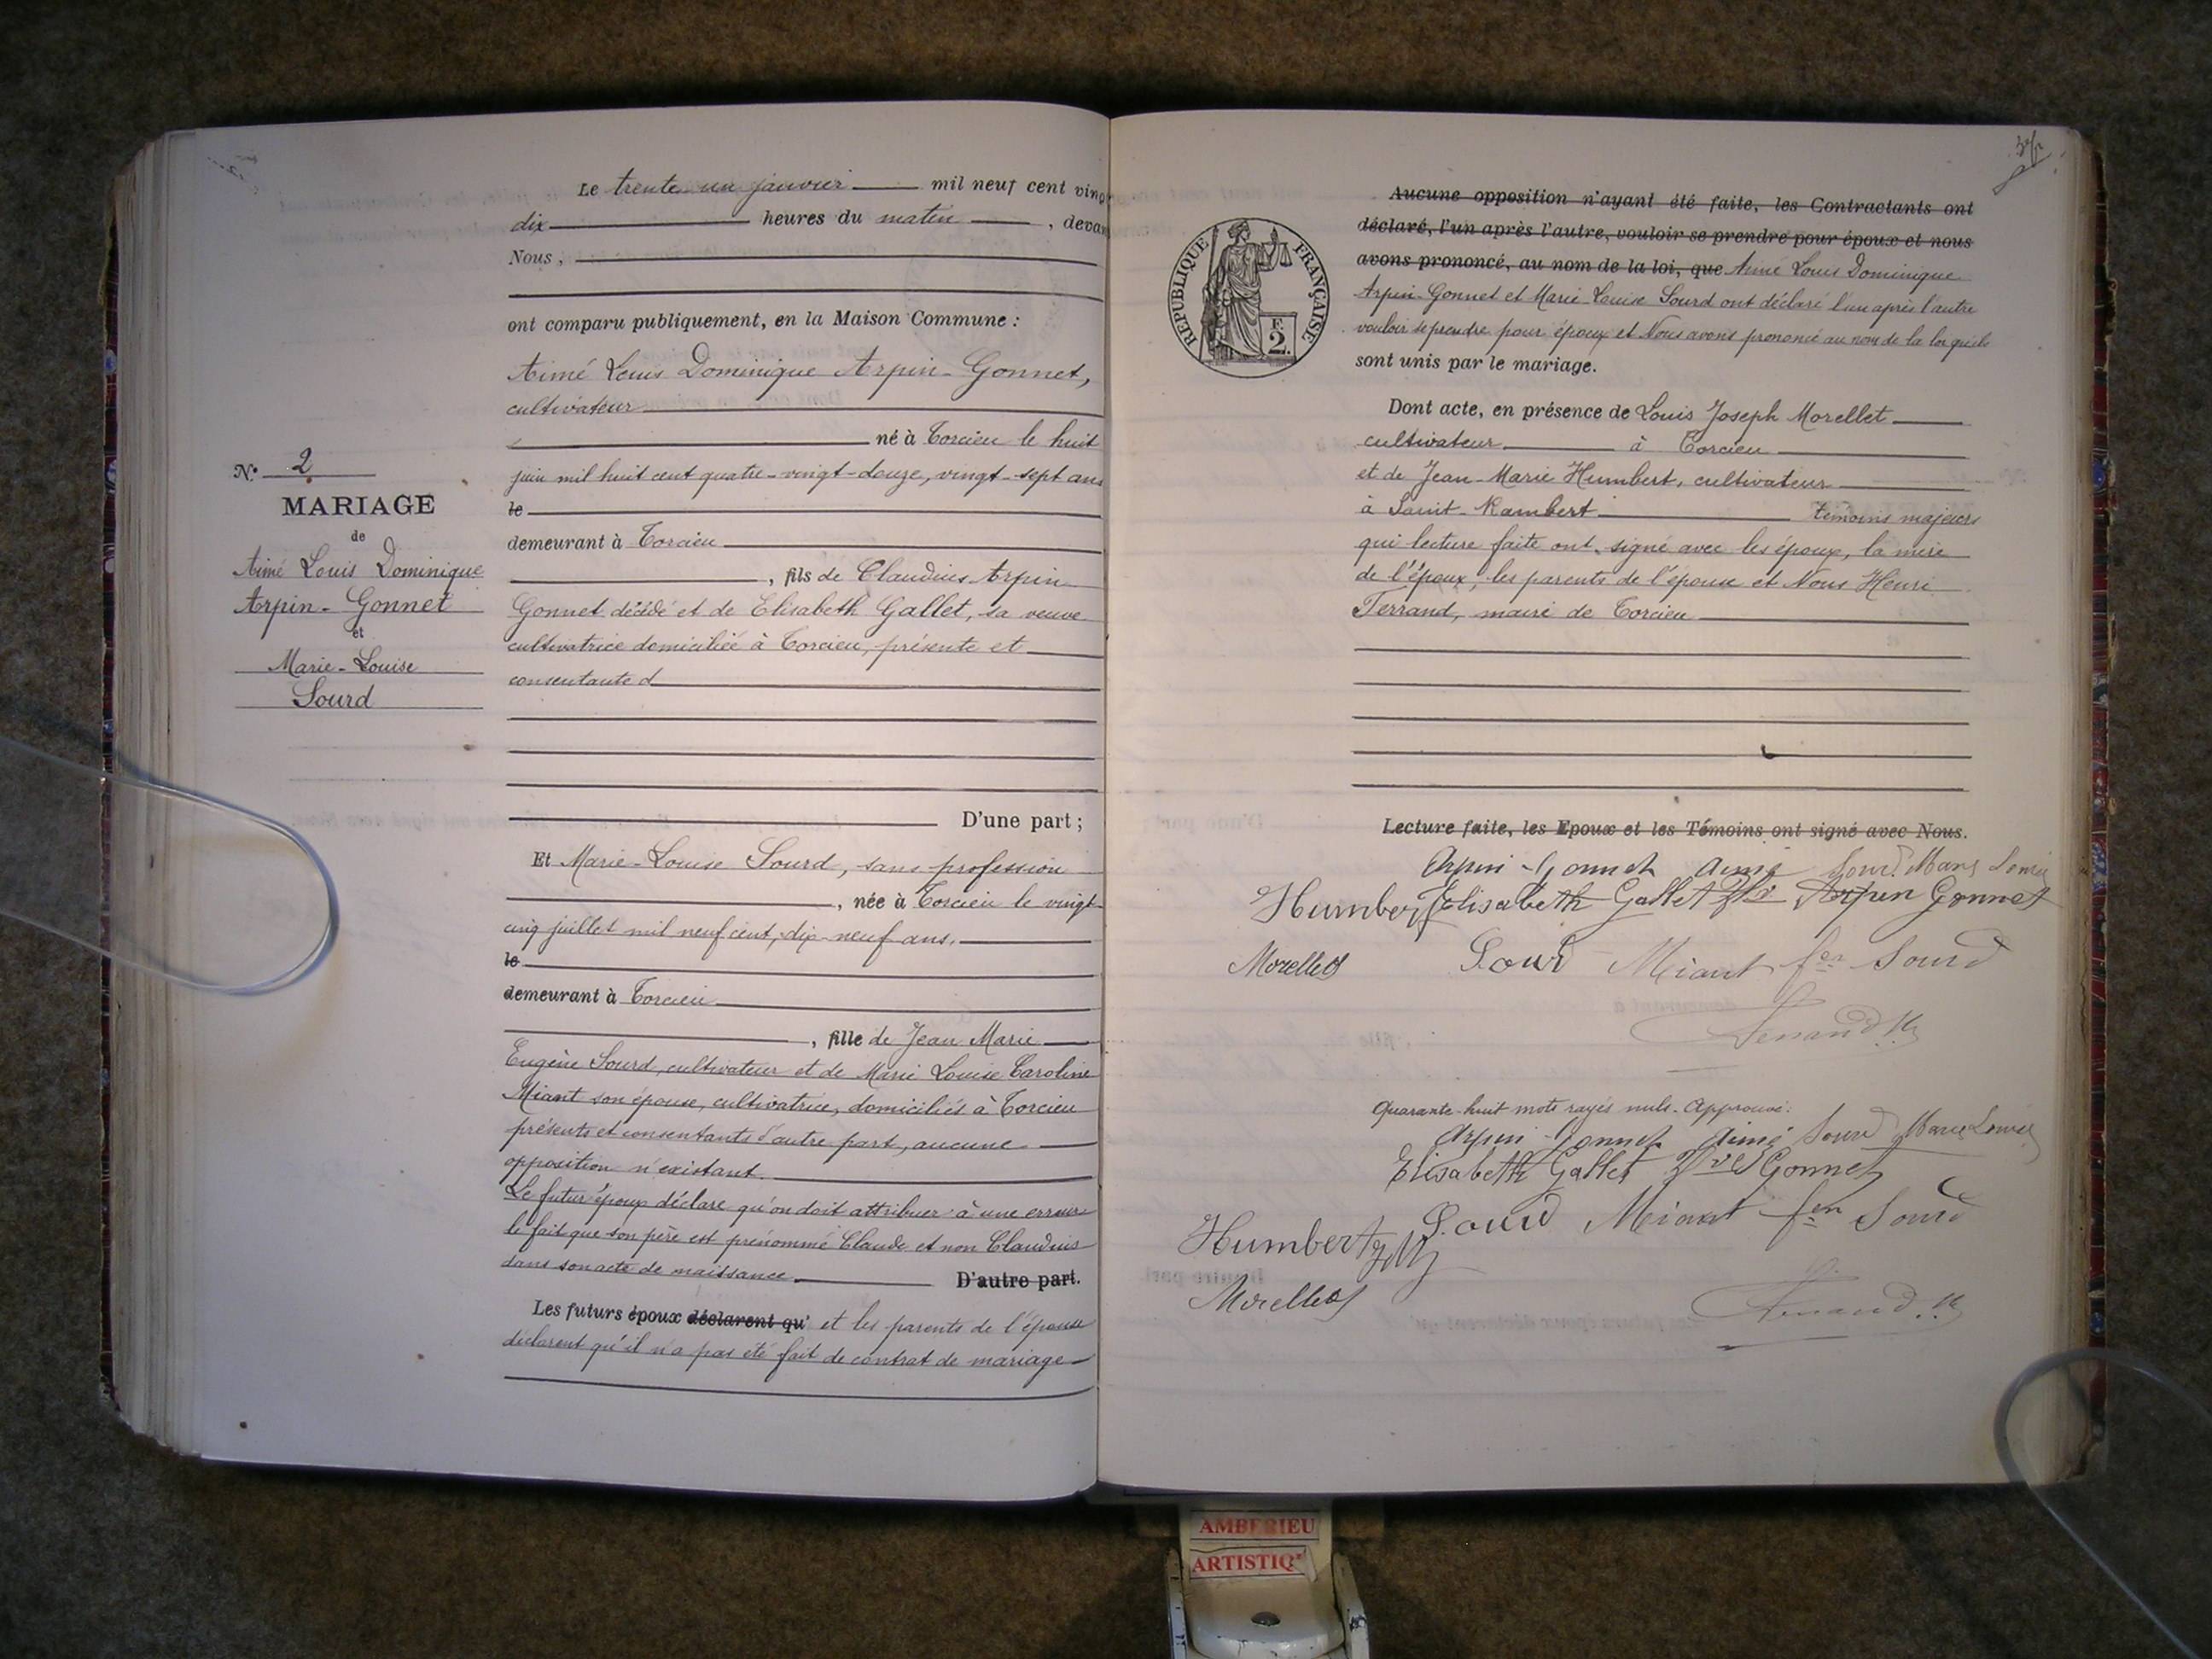 Le trente un janvier mil neuf cent ving
dix heures du matin, devan
Nous,
ont comparu publiquement, en la Maison Commune :
Aimé Louis Dominique Arpin-Gonnet,
cultivateur
né à Torcieu le huit
juin mil huit cent quatre-vingt-douze, vingt-sept ans
le
demeurant à Torcieu
, fils de Claudius Arpin
Gonnet décédé et de Elisabeth Gallet, sa veuve
cultivatrice domiciliée à Torcieu, présente et
consentante d
D'une part ;
N° 2
MARIAGE
de
Aimé Louis Dominique
Arpin-Gonnet
et
Marie-Louise
Sourd
Et Marie-Louise Sourd, sans profession
, née à Torcieu le vingt
cinq juillet mil neuf cent, dix-neuf ans.
le
demeurant à Torcieu
, fille de Jean Marie
Eugène Sourd, cultivateur et de Marie Louise Caroline
Miant son épouse, cultivatrice, domiciliés à Torcieu
présents et consentants d'autre part, aucune
opposition n'existant.
Le futur époux déclare qu'on doit attribuer à une erreur
le fait que son père est prénommé Claude et non Claudius
dans son acte de naissance D'autre part.
Les futurs époux déclarent qu' et les parents de l'épouse
déclarent qu'il n'a pas été fait de contrat de mariage
RÉPUBLIQUE FRANÇAISE
F.
2.
Aucune opposition n'ayant été faite, les Contractants ont
déclaré, l'un après l'autre, vouloir se prendre pour époux et nous
avons prononcé, au nom de la loi, que Aimé Louis Dominique
Arpin-Gonnet et Marie-Louise Sourd ont déclaré l'un après l'autre
vouloir se prendre pour époux et Nous avons prononcé au nom de la loi qu'ils
sont unis par le mariage.
Dont acte, en présence de Louis Joseph Morellet
cultivateur à Torcieu
et de Jean-Marie Humbert, cultivateur
à Saint-Rambert témoins majeurs
qui lecture faite ont signé avec les époux, la mère
de l'époux, les parents de l'épouse et Nous Henri
Ferrand, maire de Torcieu
Lecture faite, les Epoux et les Témoins ont signé avec Nous.
Arpin-Gonnet Aimé Sourd Marie Louise
Humbert Elisabeth Gallet Vve Arpin Gonnet
Morellet Sourd Miant fem Sourd
Ferrand H
Quarante-huit mots rayés nuls. Approuvé.
Arpin-Gonnet Aimé Sourd Marie Louise
Elisabeth Gallet Vve Gonnet
Sourd Miant fem Sourd
Humbert JM
Morellet
Ferrand H
AMBERIEU
ARTISTIQ'